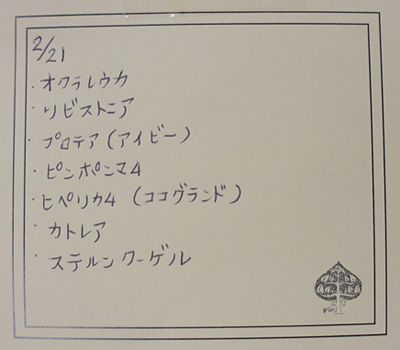 2/21
・オクラレウカ
・リビストニア
・プロテア(アイビー)
・ピンポンマム
・ヒペリカム (ココグランド)
・カトレア
・ステルンクーゲル